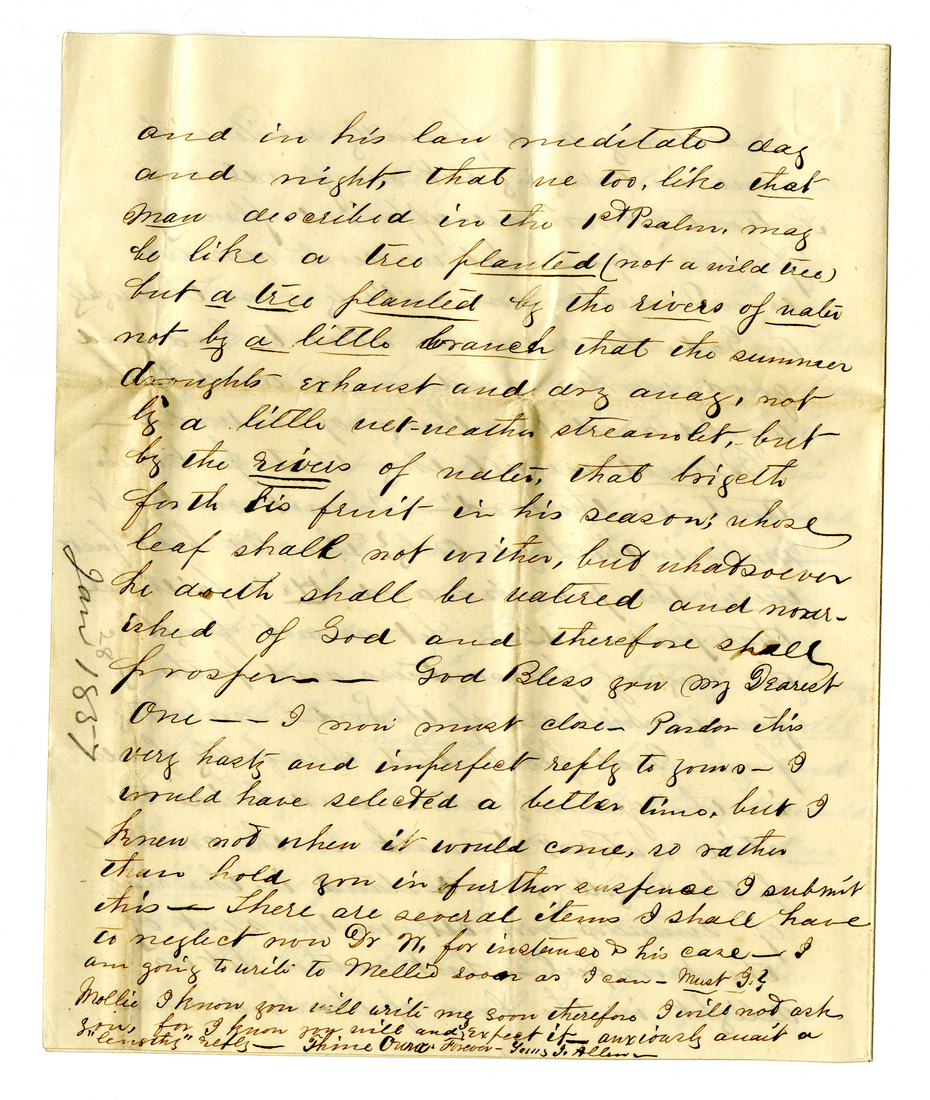 and in his law meditate day
and night, that we too, like that
man described in the 1st Psalm, may
be like a tree planted (not a wild tree)
but a tree planted by the rivers of water
not by a little branch that the summer
droughts exhaust and dry away, not
by a little wet-weather streamlet, but
by the rivers of water, that brigeth
forth his fruit in his season; whose
leaf shall not wither, but whatsoever
he doeth shall be watered and nour-
ished of God and therefore shall
prosper — — God Bless you my Dearest
One — — I now must close — Pardon this
very hasty and imperfect reply to yours — I
would have selected a better time, but I
knew not when it would come, so rather
than hold you in further suspense I submit
this — There are several items I shall have
to neglect now Dr W. for instance & his case — I
am going to write to Mellie soon as I can — Must I?
Mollie I know you will write me soon therefore I will not ask
you, for I know you will and expect it — anxiously await a
"lengthy" reply — Thine Forever — Allen
Jan 28 1857